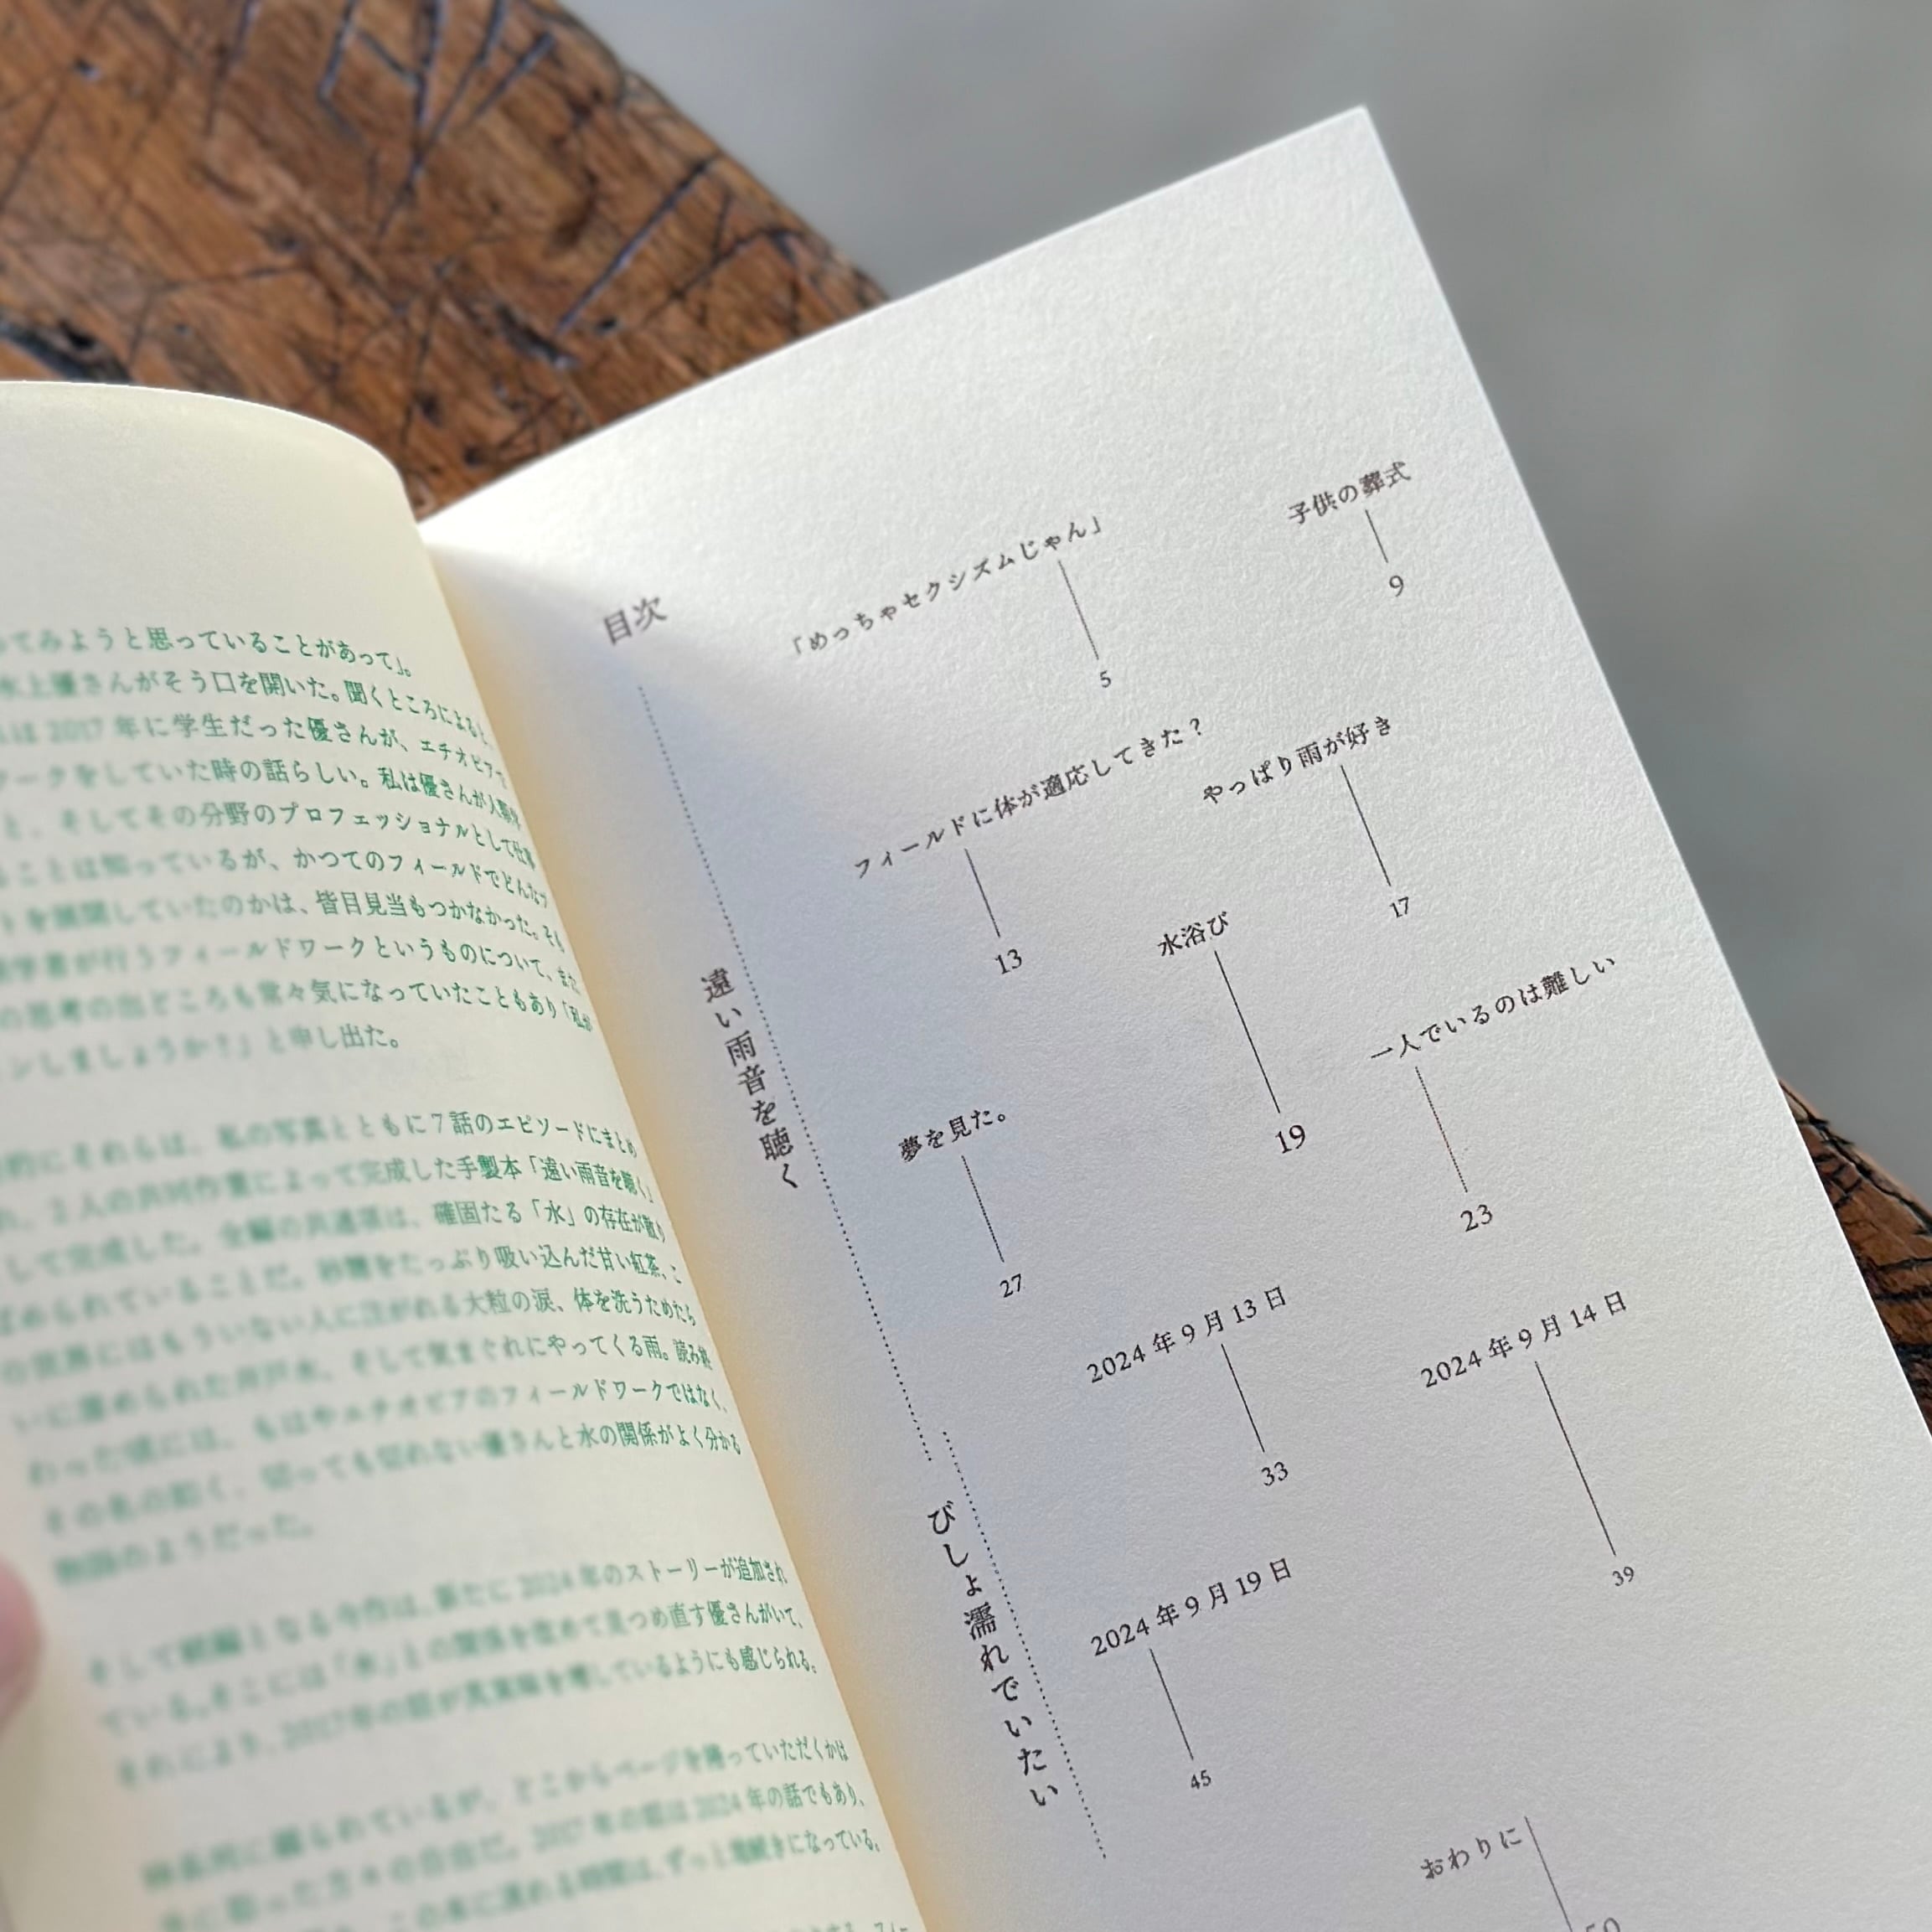 てみようと思っていることがあって」。
水上優さんがそう口を開いた。聞くところによると、
は2017年に学生だった優さんが、エチオピアで
ワークをしていた時の話らしい。私は優さんが人類学
と、そしてその分野のプロフェッショナルとして仕事
ることは知っているが、かつてのフィールドでどんな
トを展開していたのかは、皆目見当もつかなかった。そも
類学者が行うフィールドワークというものについて、また
の思考の出どころも常々気になっていたこともあり「私が
ンしましょうか?」と申し出た。
的にそれらは、私の写真とともに7話のエピソードにまとめ
れ、2人の共同作業によって完成した手製本「遠い雨音を聴く」
して完成した。全編の共通項は、確固たる「水」の存在が散り
ばめられていることだ。砂糖をたっぷり吸い込んだ甘い紅茶、こ
の世界にはもういない人に注がれる大粒の涙、体を洗うためたら
いに溜められた井戸水、そして気まぐれにやってくる雨。読み終
わった頃には、もはやエチオピアのフィールドワークではなく、
その名の如く、切っても切れない優さんと水の関係がよく分かる
物語のようだった。
そして続編となる今作は、新たに2024年のストーリーが追加され
ている。そこには「水」との関係を改めて見つめ直す優さんがいて、
それにより、2017年の話が真実味を増しているようにも感じられる。
時系列に綴られているが、どこからページを捲っていただくかは
手に取った方々の自由だ。2017年の話は2024年の話でもあり、
この本に流れる時間は、ずっと地続きになっている。
目次
遠い雨音を聴く
「めっちゃセクシズムじゃん」
5
子供の葬式
9
フィールドに体が適応してきた?
13
やっぱり雨が好き
17
水浴び
19
一人でいるのは難しい
23
夢を見た。
27
びしょ濡れでいたい
2024年9月13日
33
2024年9月14日
39
2024年9月19日
45
おわりに
50